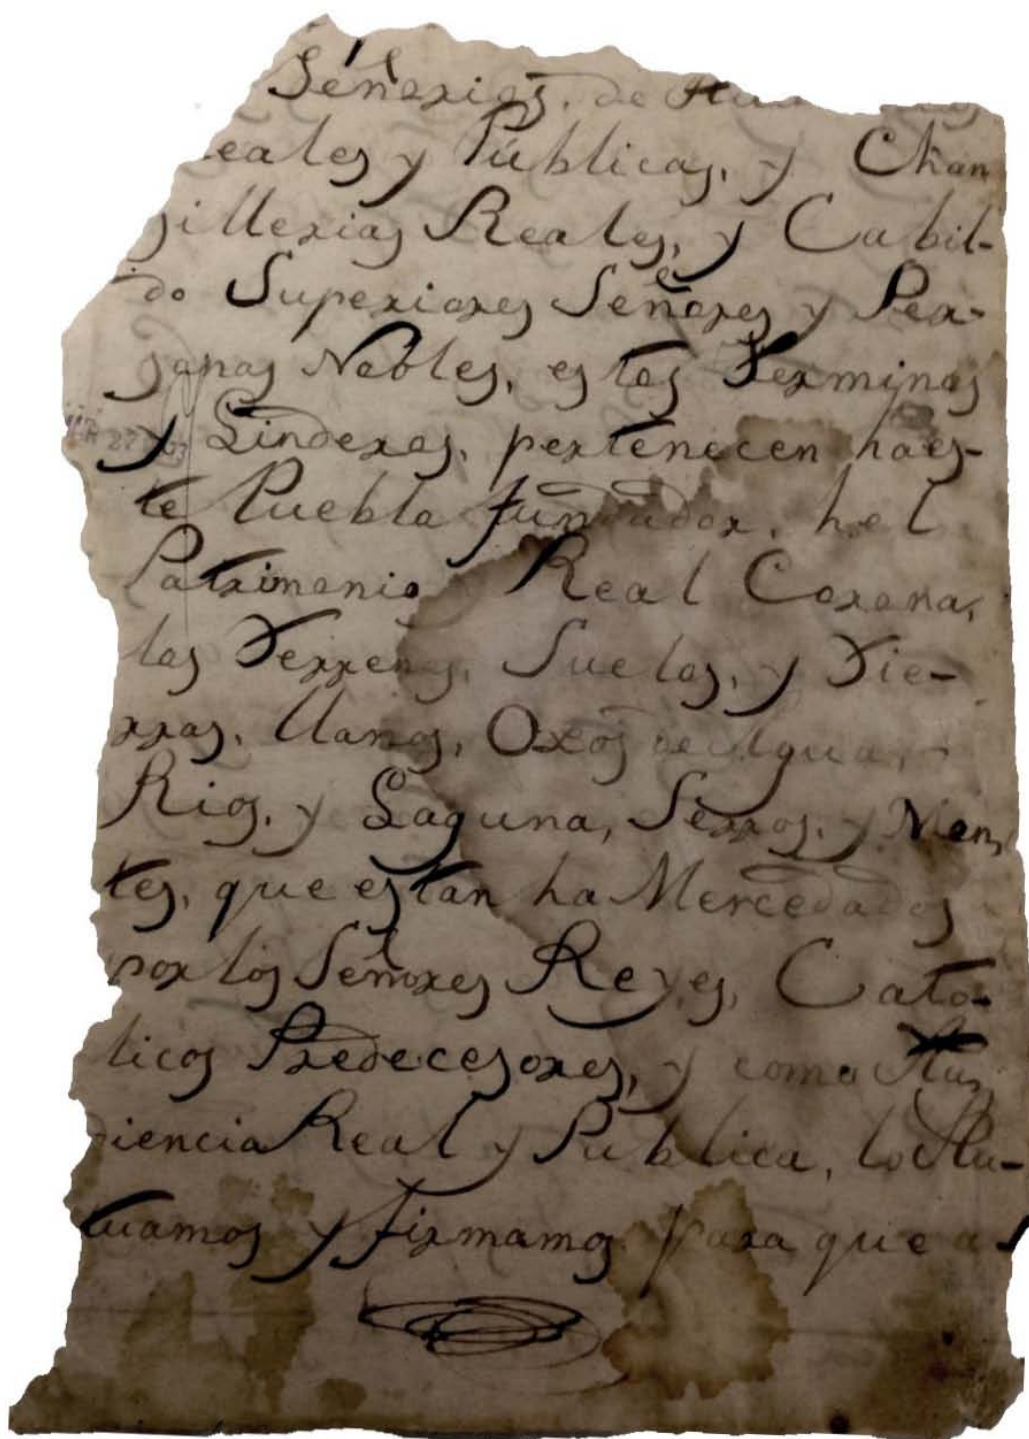 Señorias, de
eales y Publicas, y Chan
sillerias Reales, y Cabil-
do Superiores Señores y Per-
sonas Nobles, estos Terminos
y Linderos, pertenecen haes-
te Pueblo fundador, hel
Patrimonio Real Corona,
los Terrenos, Suelos, y Tie-
rras, llanos, Oxos de Agua,
Rios, y Laguna, Serros, y Mon,
tes, que estan ha Mercedados
por los Señores Reyes, Cato-
licos Predecesores, y como Au,
diencia Real y Publica, lo Au-
tuamos y firmamos para que a